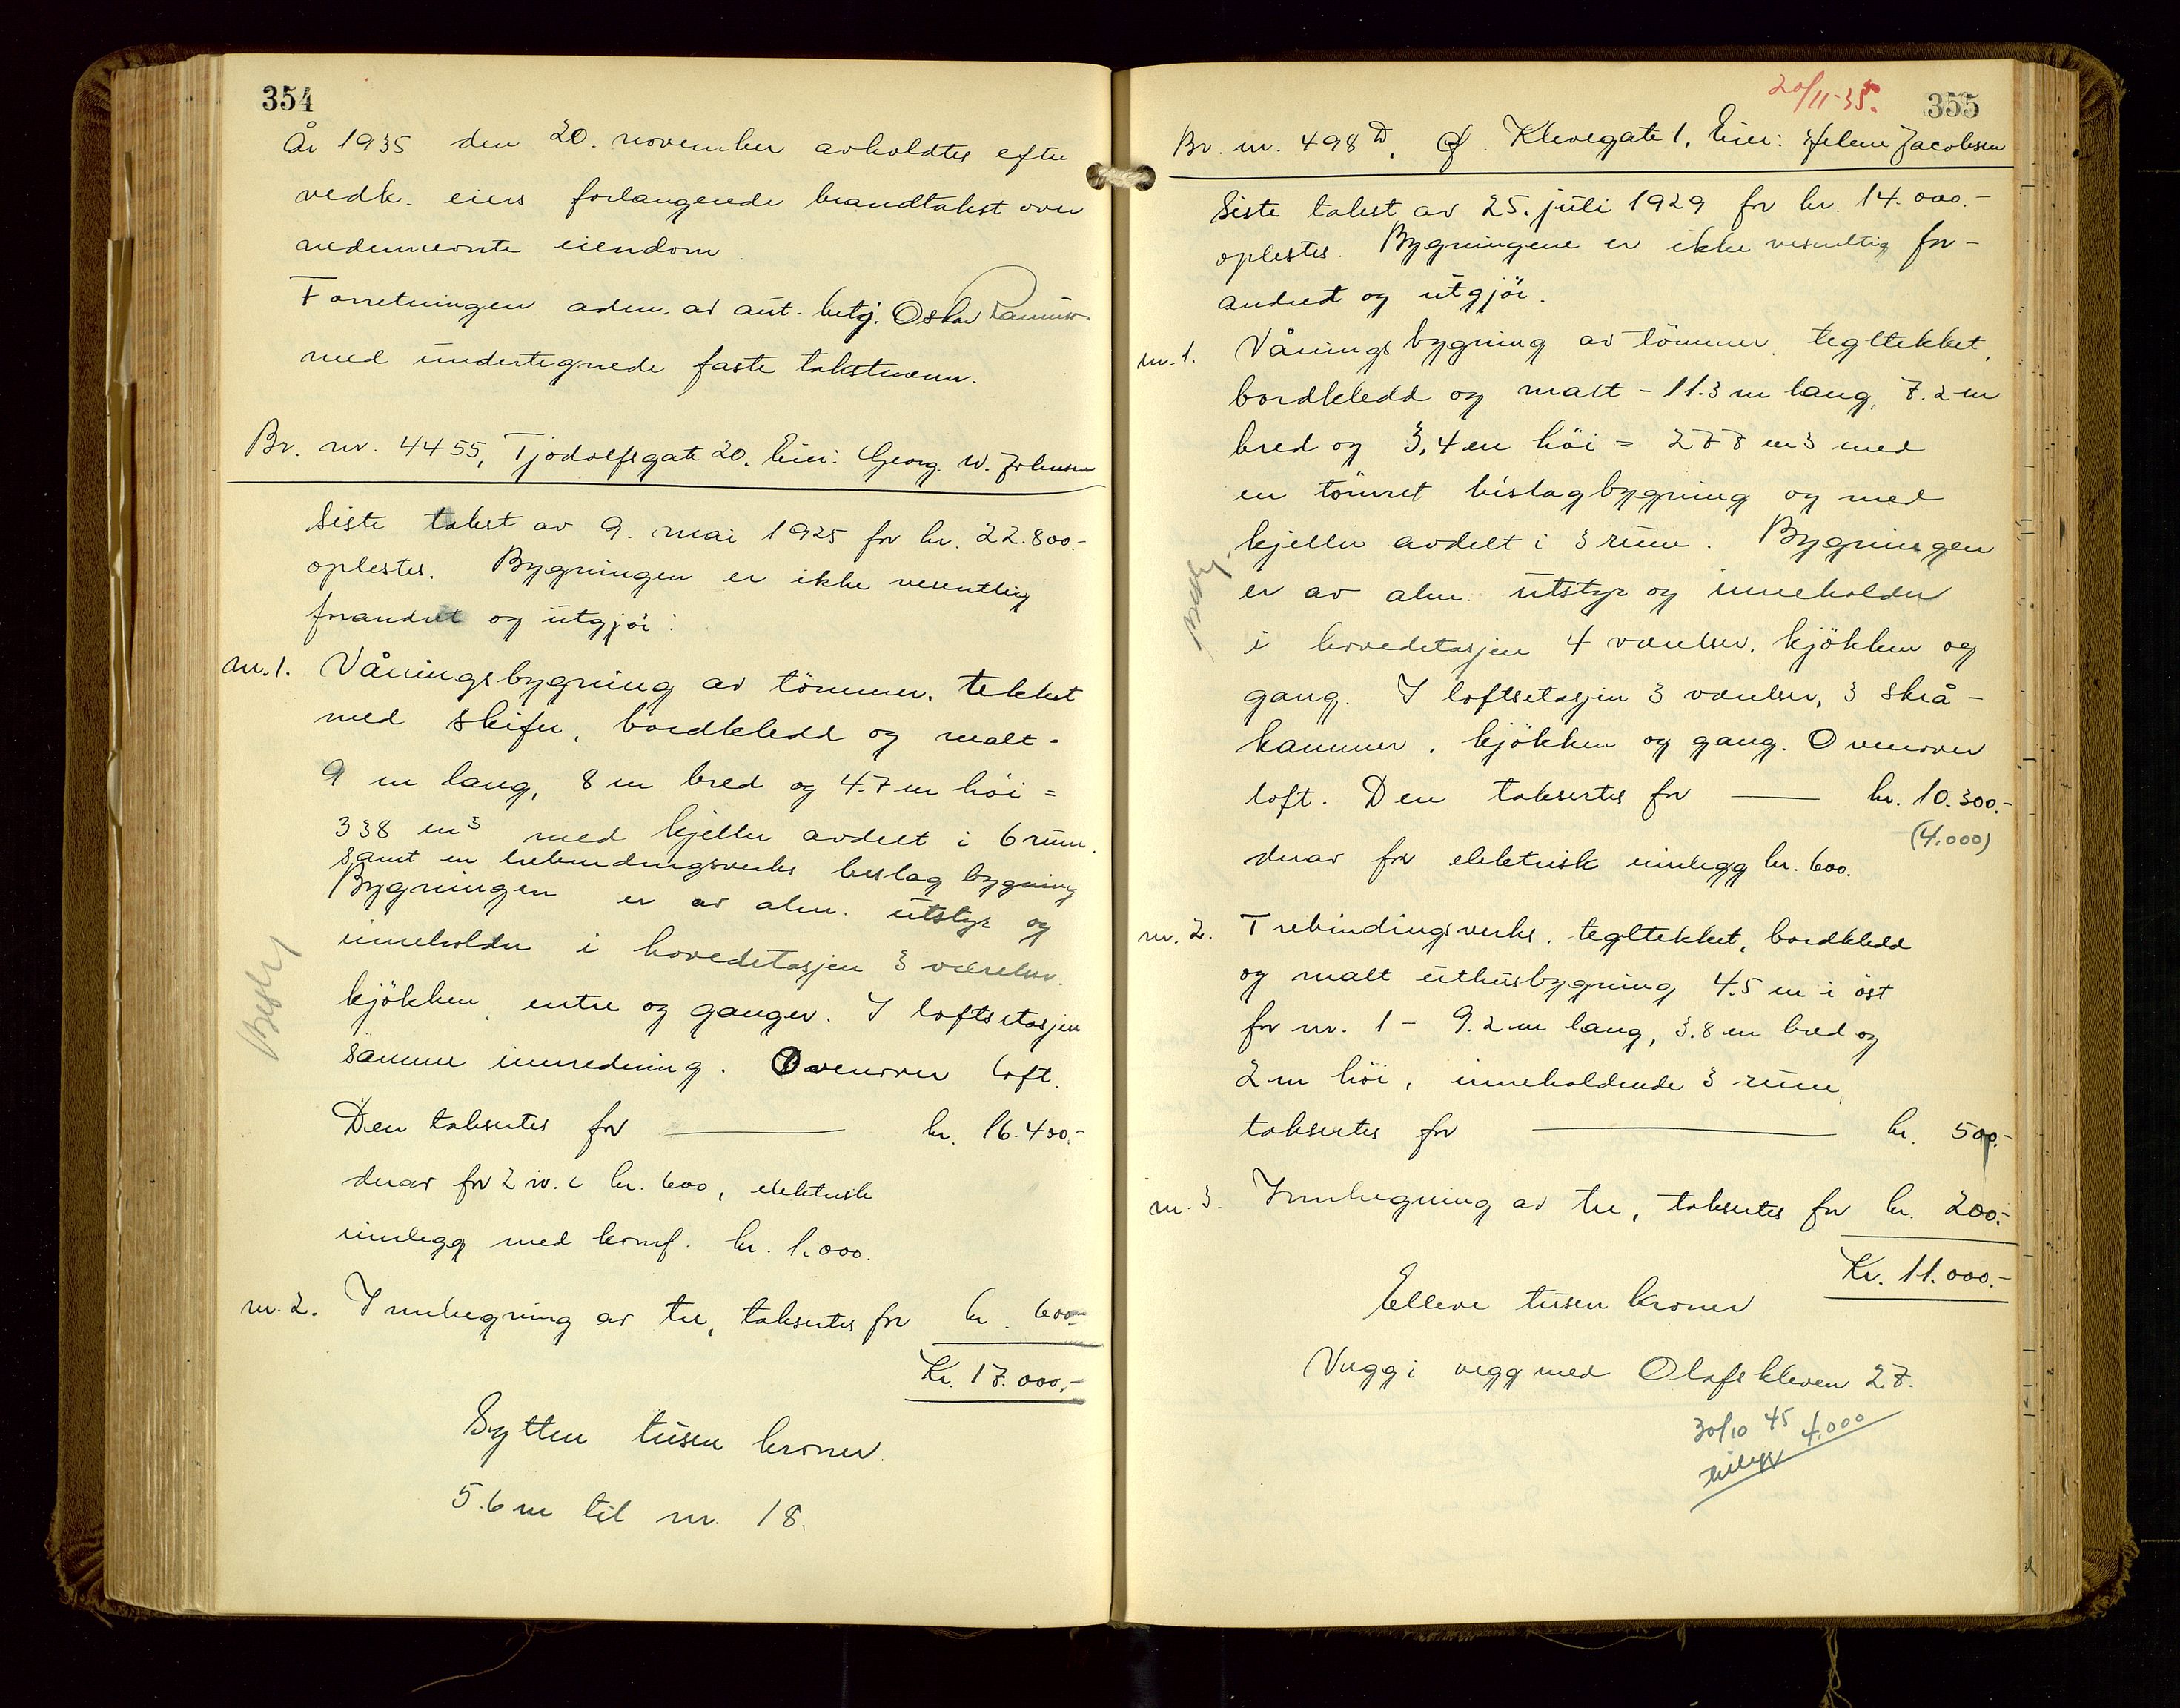 354
År 1935 den 20. november avholdtes efter
vedk. eiers forlangende brandtakst over
nedennevnte eiendom.
Forretningen adm. av aut. betj. Oskar
med undertegnede faste takstmenn.
Br. nr. 4455, Tjodolfsgate 20. Eier: Georg. W. Johnsen
Siste takst av 9. mai 1925 for kr. 22.800.-
oplestes. Bygningen er ikke vesentlig
forandret og utgjør:
nr. 1. Våningsbygning av tömmer, tekket
med skifer, bordkledd og malt -
9 m lang, 8 m bred og 4.7 m höi =
338 m3 med kjeller avdelt i 6 rum.
samt en trebindingsverks bislag bygning
Bygningen er av alm. utstyr og
inneholder i hovedetasjen 3 værelser.
kjökken, entre og ganger. I loftsetasjen
samme innredning. Ovenover loft.
Den takseres for kr. 16.400.-
derav for 2 w.c kr. 600, elektrisk
innlegg med komf. kr. 1.000.
nr. 2. Innhegning av tre, takseres for kr. 600.-
Kr. 17.000.-
Sytten tusen kroner.
5.6 m til nr. 18.
20/11-35.
355
Br. nr. 498 D, Klevegate 1. Eier: Helene Jacobsen
Siste takst av 25. juli 1929 for kr. 14.000.-
oplestes. Bygningene er ikke vesentlig for-
andret og utgjör.
nr. 1. Våningsbygning av tömmer, tegltekket,
bordkledd og malt - 11.3 m lang, 7.2 m
bred og 3,4 m höi = 277 m3 med
en tömret bislagbygning og med
kjeller avdelt i 3 rum. Bygningen
er av alm. utstyr og inneholder
i hovedetasjen 4 værelser, kjökken og
gang. I loftsetasjen 3 værelser, 3 skrå-
kammer, kjökken og gang. Ovenover
loft. Den takseres for kr. 10.300.-
(4.000)
derav for elektrisk innlegg kr. 600.
nr. 2. Trebindingsverks, tegltekket, bordkledd
og malt uthusbygning 4.5 m i öst
for nr. 1 - 9.2 m lang, 3.8 m bred og
2 m höi, inneholdende 3 rum,
takseres for kr. 500.-
nr. 3. Innhegning av tre, takseres for kr. 200.-
Kr. 11.000.-
Elleve tusen kroner
Vegg i vegg med Olafskleven 27.
30/10 45 4.000
tillegg